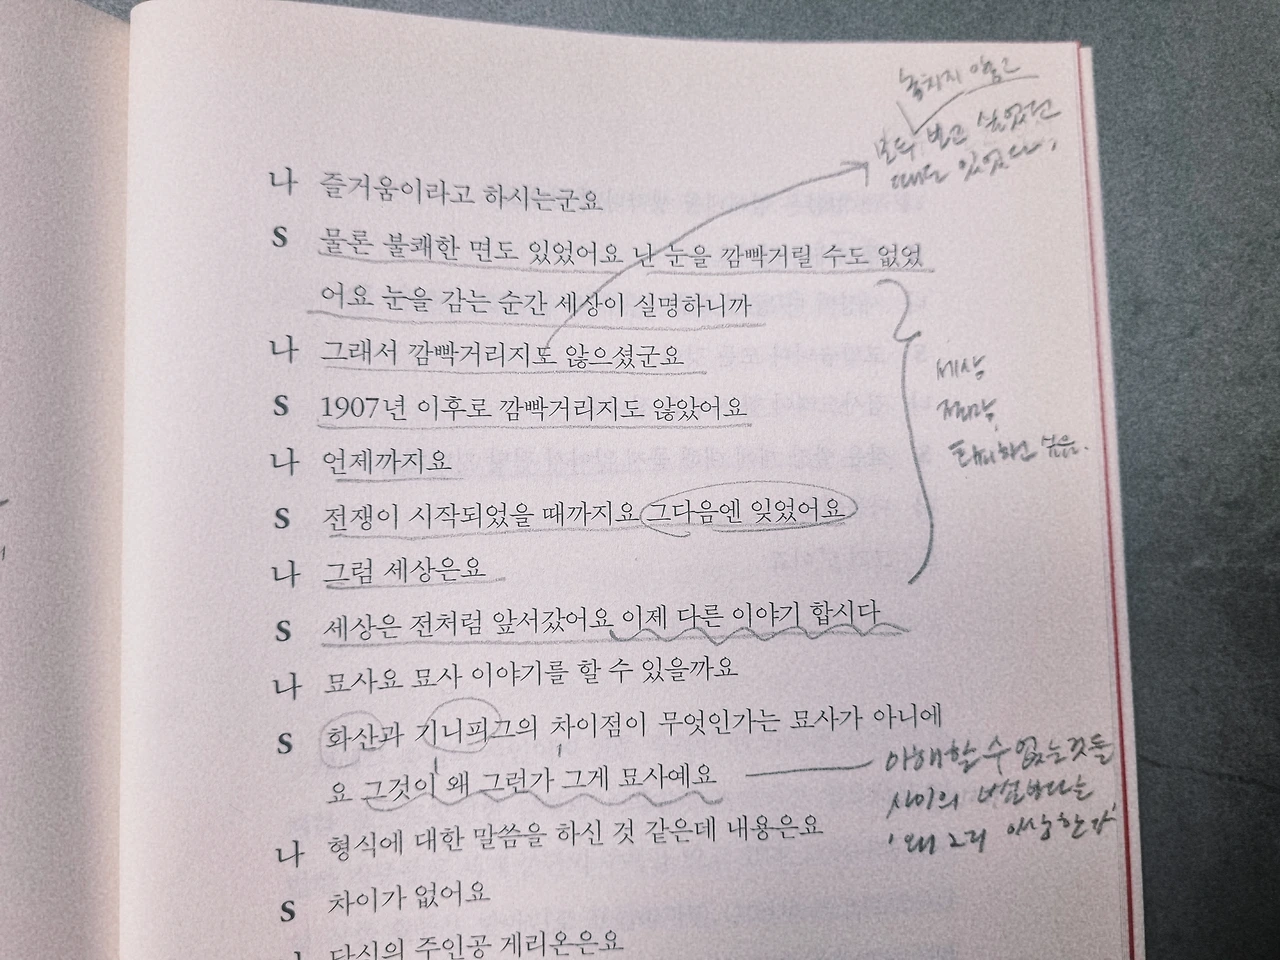 놓치지 않고
모두 보고 싶었던
때도 있었다,
나 즐거움이라고 하시는군요
S 물론 불쾌한 면도 있었어요 난 눈을 깜빡거릴 수도 없었
어요 눈을 감는 순간 세상이 실명하니까
나 그래서 깜빡거리지도 않으셨군요
S 1907년 이후로 깜빡거리지도 않았어요
나 언제까지요
S 전쟁이 시작되었을 때까지요 그다음엔 잊었어요
나 그럼 세상은요
S 세상은 전처럼 앞서갔어요 이제 다른 이야기 합시다
세상
도피하고 싶음.
나 묘사요 묘사 이야기를 할 수 있을까요
S 화산과 기니피그의 차이점이 무엇인가는 묘사가 아니에
요 그것이 왜 그런가 그게 묘사예요
이해할 수 없는 것들
사이의
'왜 그리 이상한가'
나 형식에 대한 말씀을 하신 것 같은데 내용은요
S 차이가 없어요
나 당신의 주인공 게리온은요